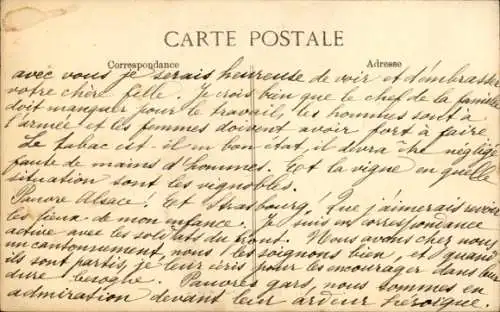 CARTE POSTALE
Correspondance Adresse
avec vous je serais heureuse de voir et d'embrasser
votre chère fille. Je crois bien que le chef de la famille
doit manquer pour le travail, les hommes sont à
l'armée et les femmes doivent avoir fort à faire
Le tabac est-il en bon état, il devra être négligé
faute de mains d'hommes. Et la vigne en quelle
situation sont les vignobles.
Pauvre Alsace. Et Strasbourg! Que j'aimerais revoir
les lieux de mon enfance. Je suis en correspondance
active avec les soldats du front. Nous avons chez nous
un cantonnement, nous les soignons bien, et quand
ils sont partis, je leur écris pour les encourager dans leur
dure besogne. Pauvres gars, nous sommes en
admiration devant leur ardeur héroïque.